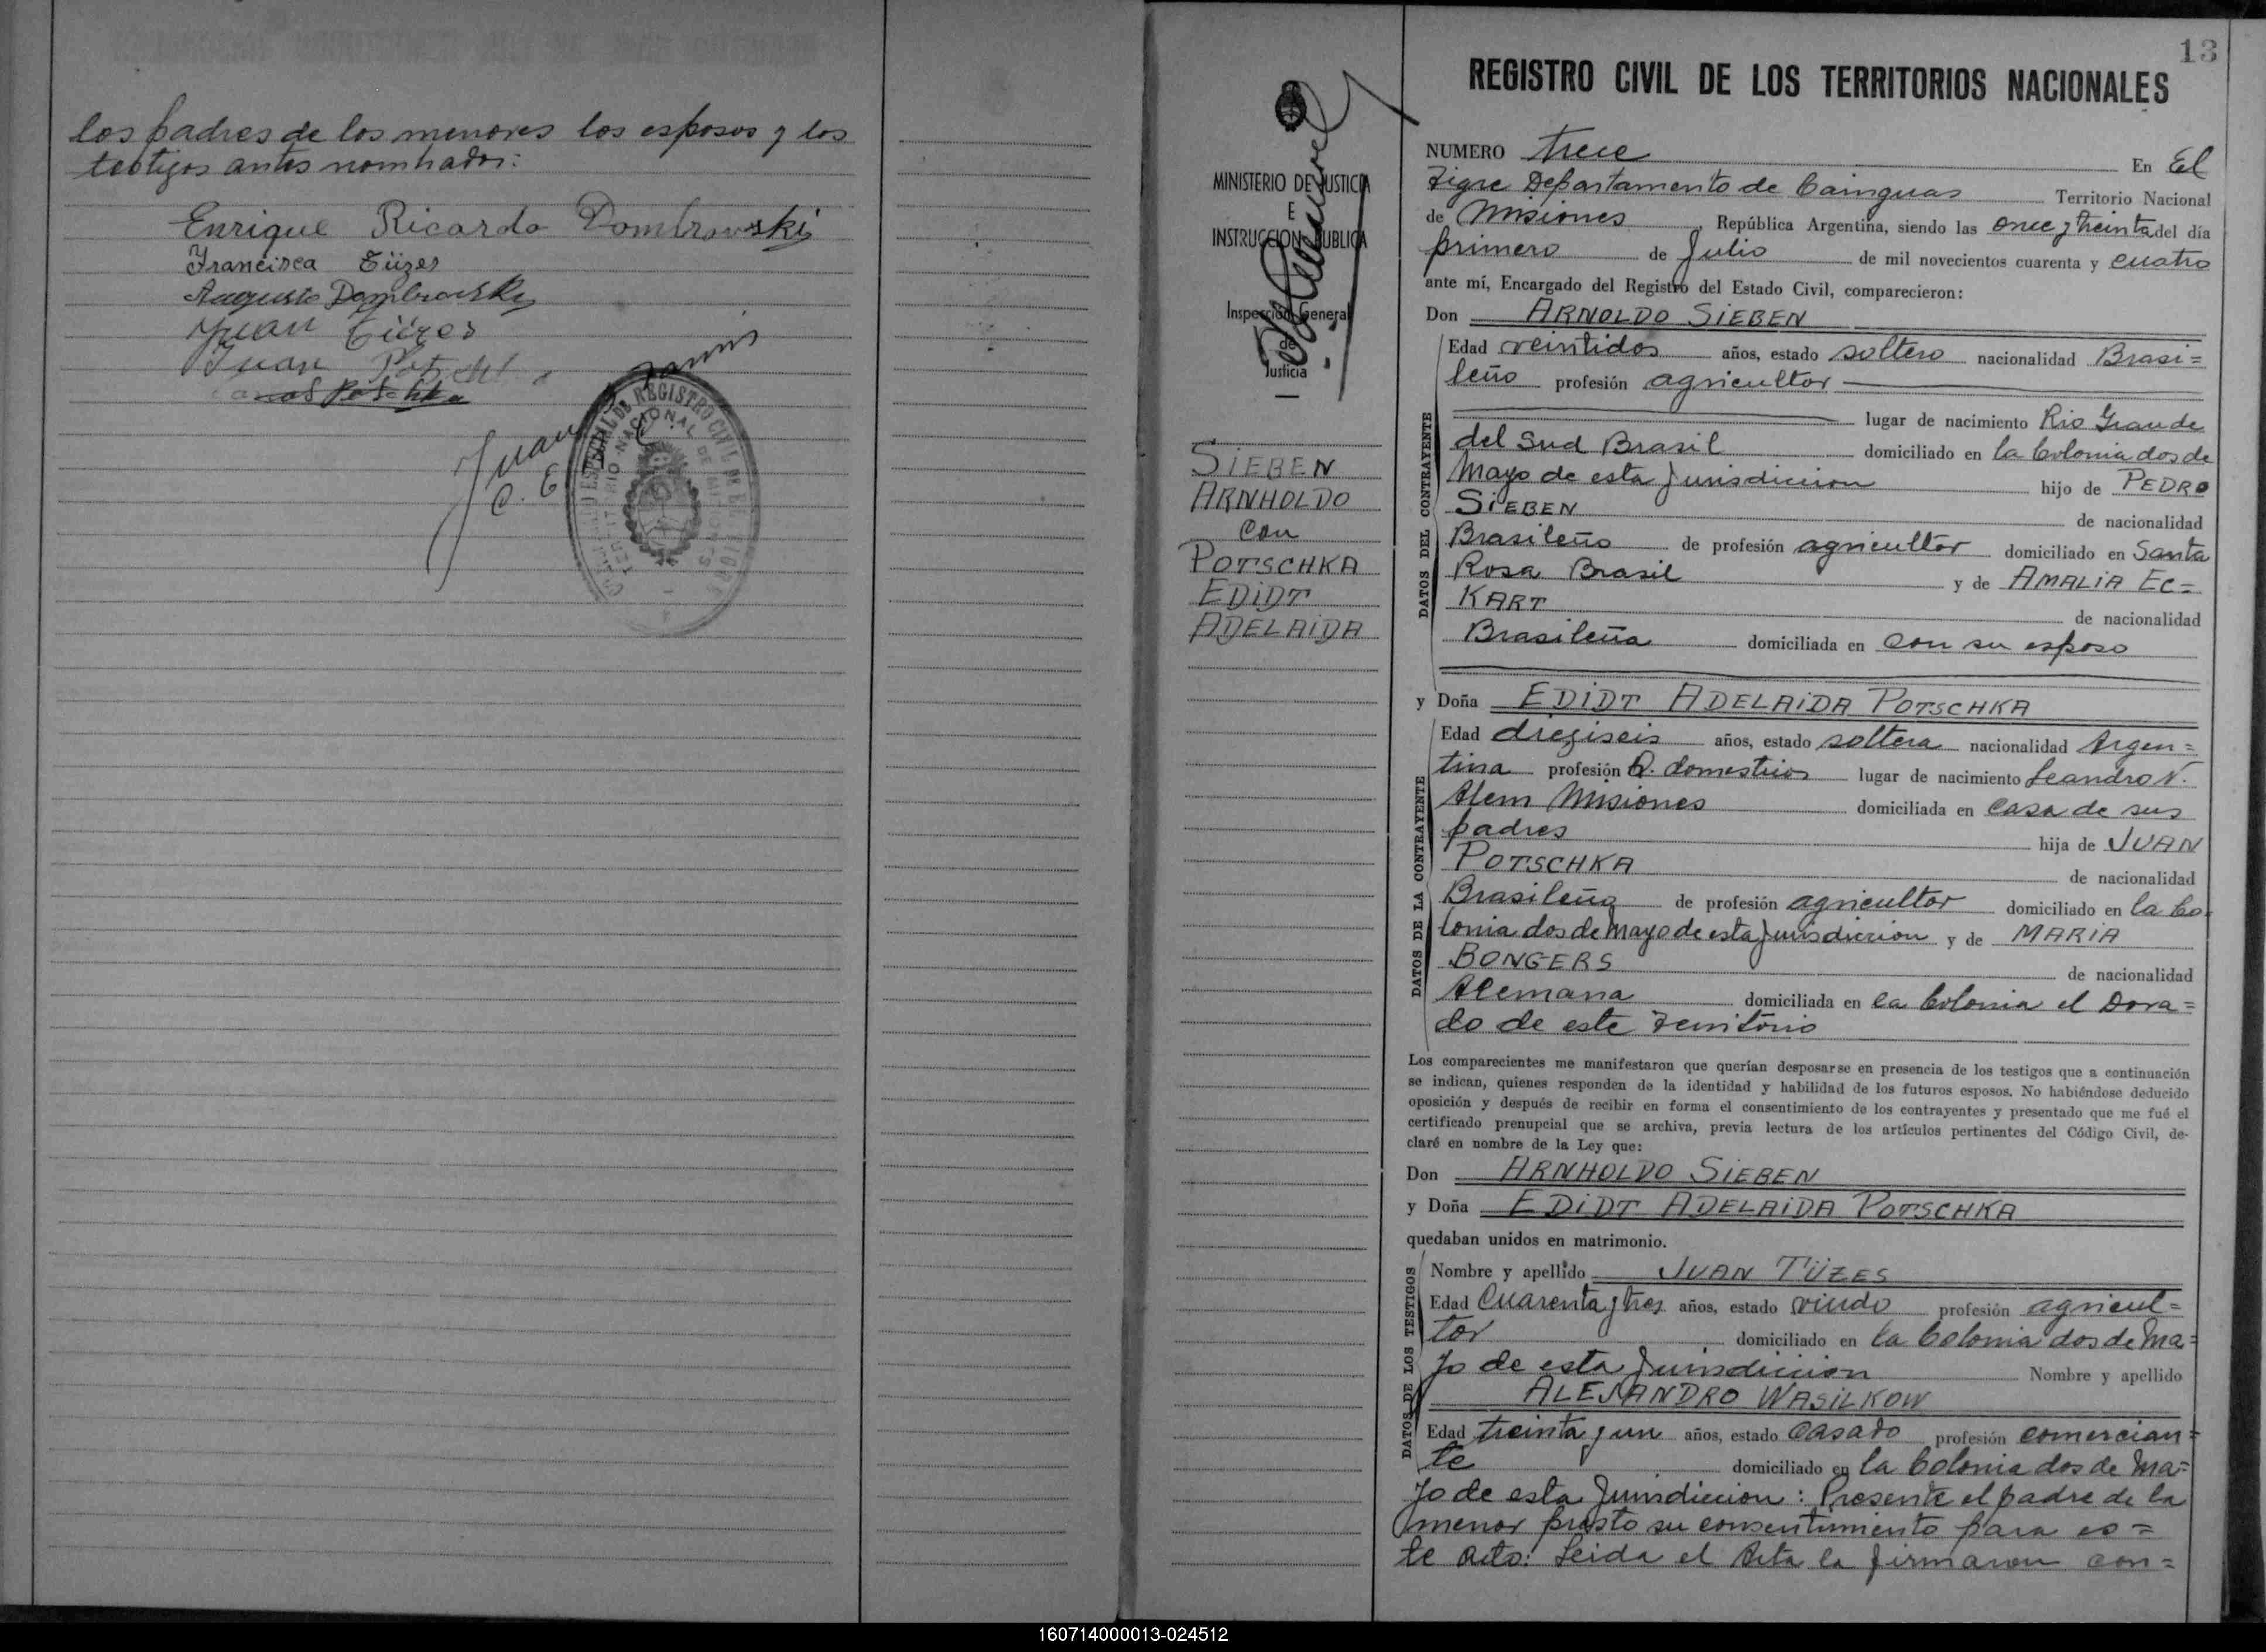 los padres de los menores los esposos y los
testigos antes nombrados:
Enrique Ricardo Dombrowski
Francisca Tüzes
Augusto Dombrowski
Juan Tüzes
Juan
Juan
13
REGISTRO CIVIL DE LOS TERRITORIOS NACIONALES
MINISTERIO DE JUSTICIA
E
INSTRUCCION PUBLICA
Inspección General
de
Justicia
SIEBEN
ARNHOLDO
con
POTSCHKA
EDIDT
ADELAIDA
NUMERO trece En El
Tigre Departamento de Cainguas Territorio Nacional
de Misiones, República Argentina, siendo las once y treinta del día
primero de Julio de mil novecientos cuarenta y cuatro
ante mí, Encargado del Registro del Estado Civil, comparecieron:
Don ARNOLDO SIEBEN
DATOS DEL CONTRAYENTE
Edad veintidos años, estado soltero nacionalidad Brasi=
leño profesión agricultor
lugar de nacimiento Rio Grande
del Sud Brasil domiciliado en la Colonia dos de
Mayo de esta Jurisdiccion hijo de PEDRO
SIEBEN de nacionalidad
Brasileño de profesión agricultor domiciliado en Santa
Rosa Brasil y de AMALIA EC=
KART de nacionalidad
Brasileña domiciliada en con su esposo
y Doña EDIDT ADELAIDA POTSCHKA
DATOS DE LA CONTRAYENTE
Edad dieziseis años, estado soltera nacionalidad Argen=
tina profesión Q. domesticos lugar de nacimiento Leandro N.
Alem Misiones domiciliada en casa de sus
padres hija de JUAN
POTSCHKA de nacionalidad
Brasileño de profesión agricultor domiciliado en la Co-
lonia dos de Mayo de esta Jurisdiccion y de MARIA
BONGERS de nacionalidad
Alemana domiciliada en la Colonia el Dora=
do de este Territorio
Los comparecientes me manifestaron que querían desposarse en presencia de los testigos que a continuación
se indican, quienes responden de la identidad y habilidad de los futuros esposos. No habiéndose deducido
oposición y después de recibir en forma el consentimiento de los contrayentes y presentado que me fué el
certificado prenupcial que se archiva, previa lectura de los artículos pertinentes del Código Civil, de-
claré en nombre de la Ley que:
Don ARNHOLDO SIEBEN
y Doña EDIDT ADELAIDA POTSCHKA
quedaban unidos en matrimonio.
DATOS DE LOS TESTIGOS
Nombre y apellido JUAN TÜZES
Edad Cuarenta y tres años, estado viudo profesión agricul=
tor domiciliado en la Colonia dos de Ma=
yo de esta Jurisdiccion Nombre y apellido
ALEJANDRO WASILKOW
Edad treinta y un años, estado casado profesión comercian=
te domiciliado en la Colonia dos de Ma=
yo de esta Jurisdiccion: Presente el padre de la
menor prestó su consentimiento para es=
te acto: Leida el Acta la firmaron con=
160714000013-024512